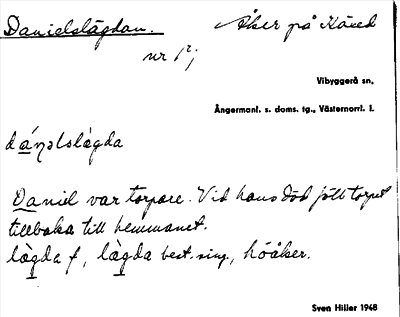 Danielslägdan. Åker på Käxed
nr 1²;
Vibyggerå sn,
Ångermanl. s. doms. tg., Västernorrl. l.
dáṇəlslàgda
Daniel var torpare. Vid hans död föll torpet
tillbaka till hemmanet.
làgda f, làgda best. sing., höåker.
Sven Hiller 1948